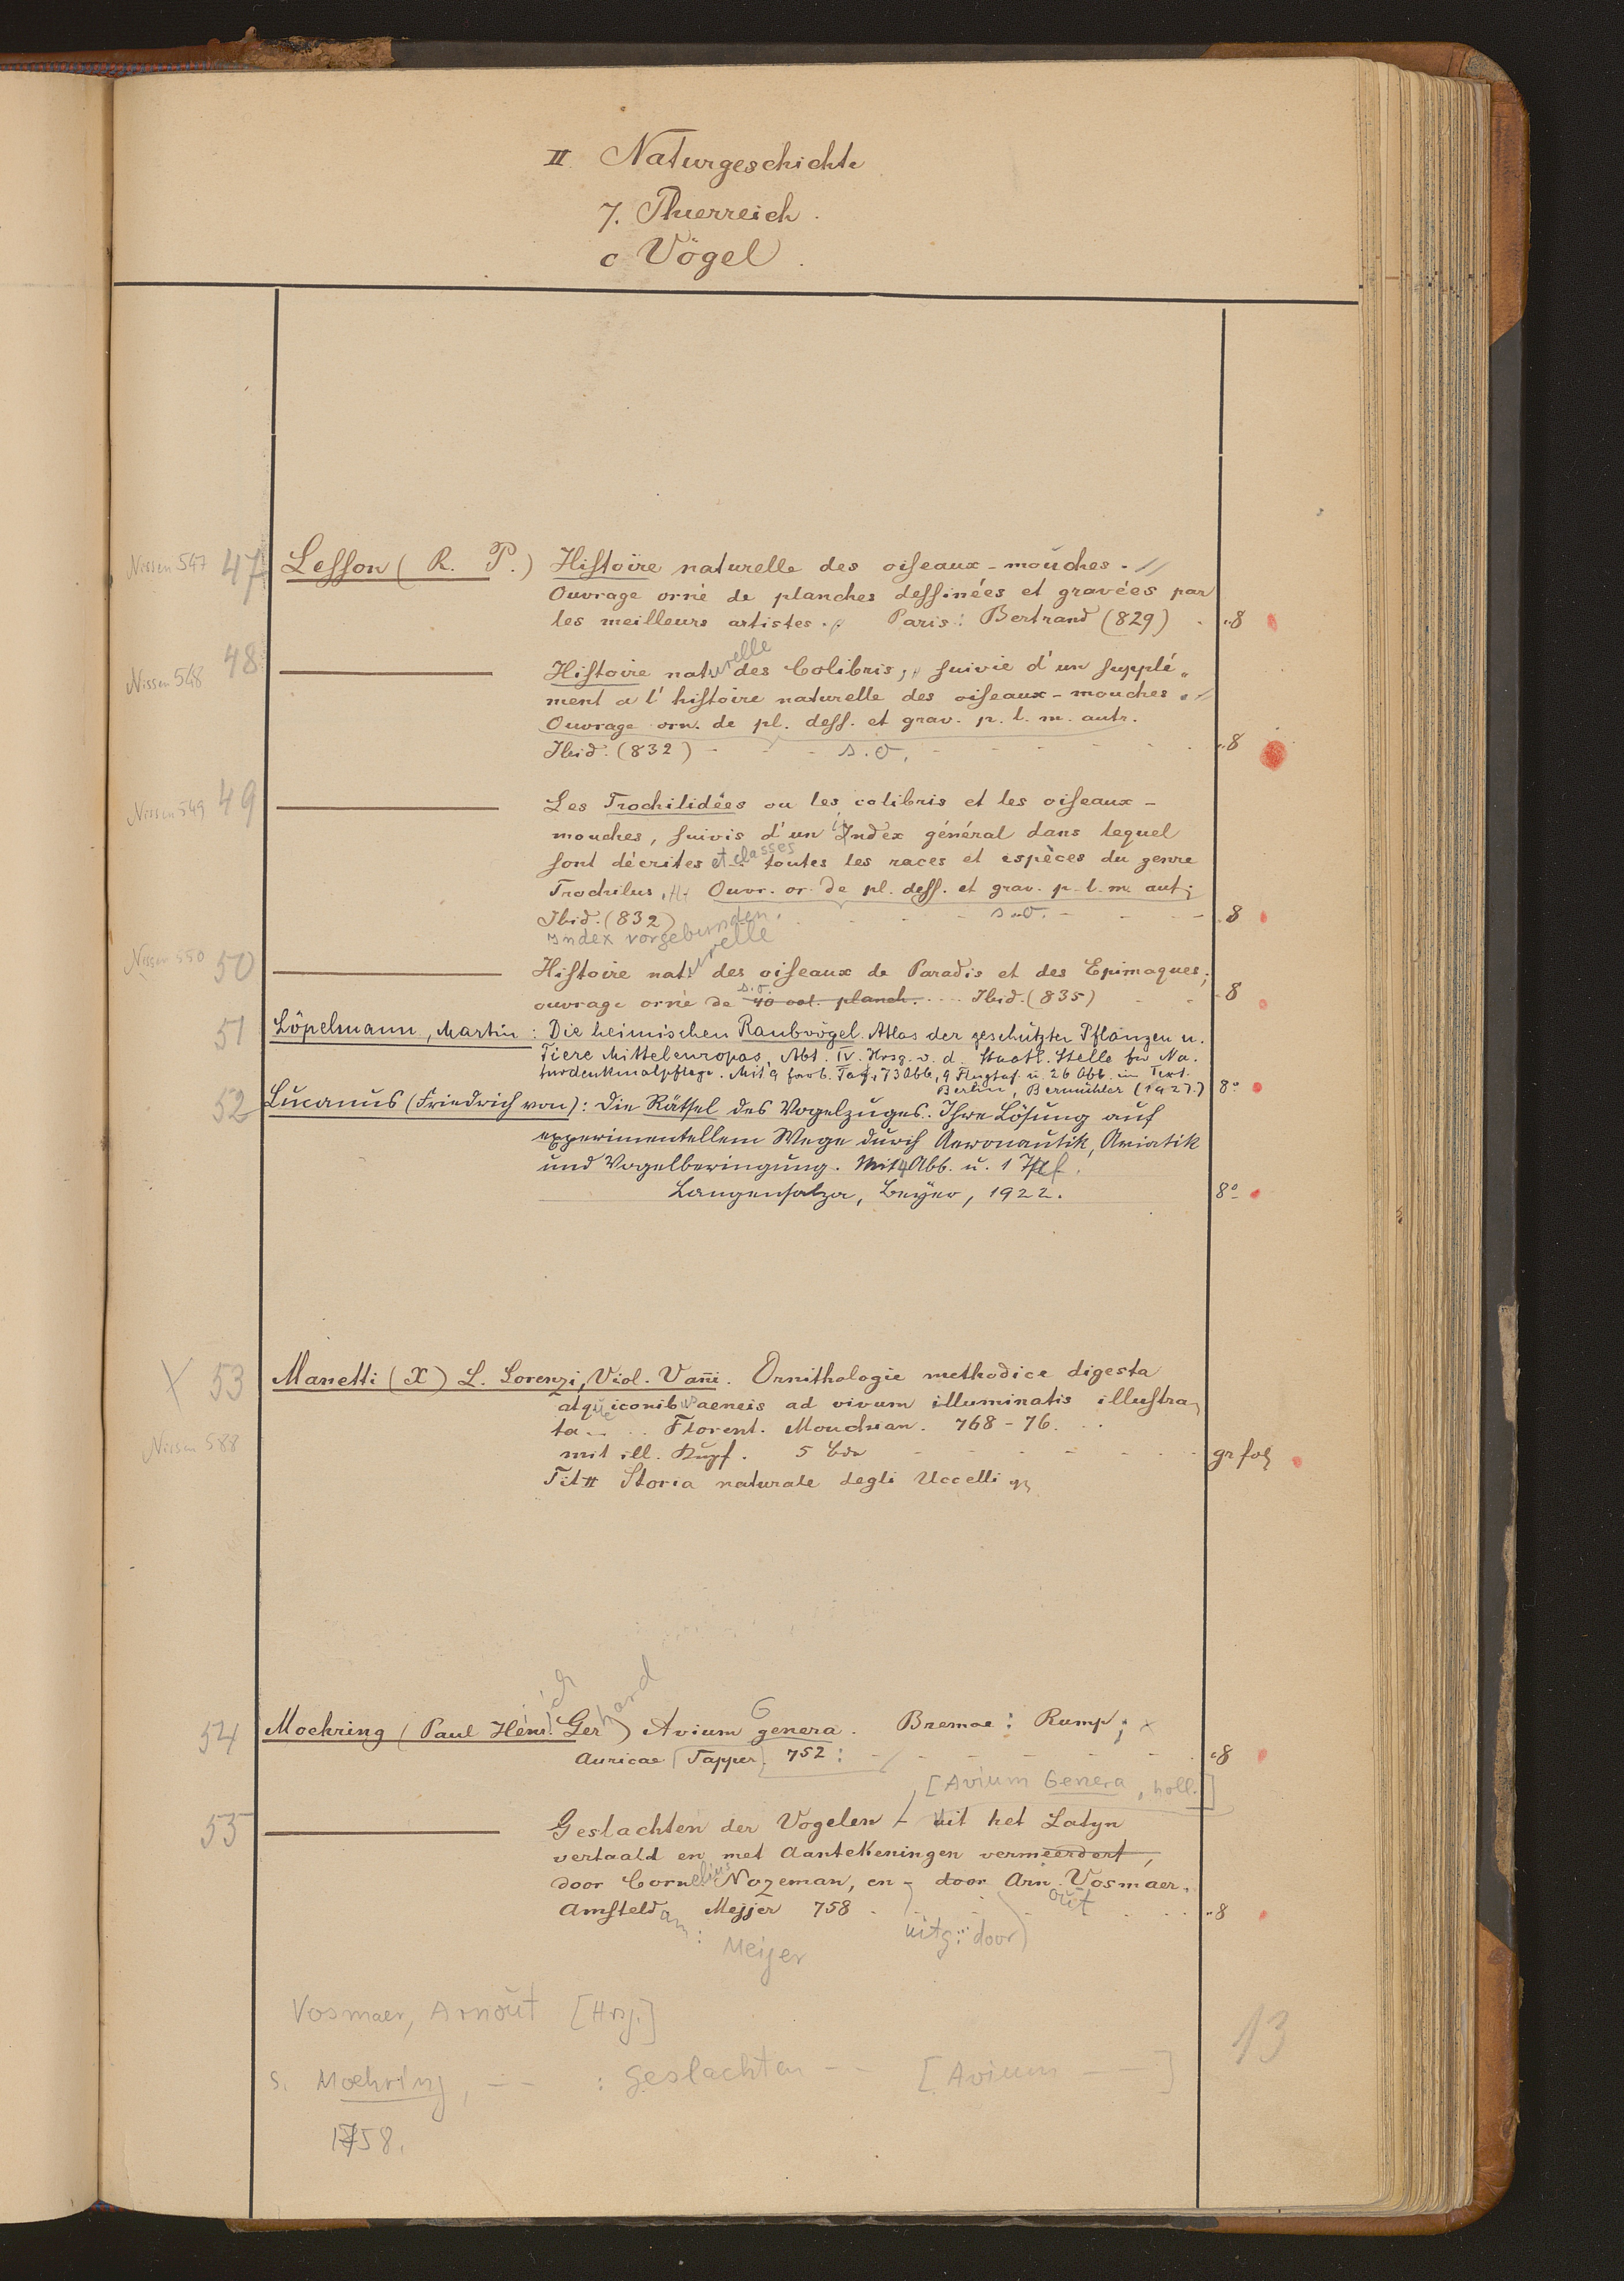 II Naturgeschichte
7. Thierreich.
c Vögel.
Nissen 547 47 Leſſon (R. P.) Hiſtoire naturelle des oiſeaux-mouches.
Ouvrage orné de planches deſſinées et gravées par
les meilleurs artistes. Paris: Bertrand (829) 8
Nissen 548 48 Hiſtoire naturelle des Colibris, ſuivie d'un ſupplé-
ment a l'hiſtoire naturelle des oiſeaux-mouches.
Ouvrage orn. de pl. deſſ. et grav. p. l. m. autr.
Ibid. (832) s.o. 8
Nissen 549 49 Les Trochilidées ou les colibris et les oiſeaux-
mouches, ſuivis d'un Index général dans lequel
ſont décrites et classes toutes les races et espèces du genre
Trochilus. Ouvr. or. de pl. deſſ. et grav. p. l. m. aut.
Ibid. (832) s.o. 8
Index vorgebunden.
Nissen 550 50 Hiſtoire naturelle des oiſeaux de Paradis et des Epimaques;
ouvrage orné de s.o. 40 col. planch. Ibid. (835) 8
51 Löpelmann, Martin: Die heimischen Raubvögel. Atlas der geschützten Pflanzen u.
Tiere Mitteleuropas, Abt. IV. Hrsg. v. d. Staatl. Stelle für Na-
turdenkmalpflege. Mit 9 farb. Taf., 73 Abb., 9 Flugtaf. u. 26 Abb. im Text.
Berlin, Bermühler (1927) 8°
52 Lucanus (Friedrich von): Die Rätſel des Vogelzuges. Ihre Löſung auf
experimentellem Wege durch Aeronautik, Aviatik
und Vogelberingung. Mit 4 Abb. u. 1 Tfl.
Langenſalza, Beyer, 1922. 8°
X 53 Manetti (X) L. Lorenzi, Viol. Vañi. Ornithologie methodice digesta
atque iconibus aeneis ad vivum illuminatis illuſtra-
ta. Florent. Moucke an. 768-76.
Nissen 588 mit ill. Kupf. 5 bde gr fol
Tit II Storia naturale degli Uccelli
54 Moehring (Paul Heinrich Gerhard) Avium Genera. Bremae: Rump;
Auricae Tapper. 752: 8
[Avium Genera, holl.]
55 Geslachten der Vogelen uit het Latyn
vertaald en met Aantekeningen vermeerdert,
door Cornelius Nozeman, en door Arn. Vosmaer.
out
Amſteldam: Mejjer 758 8
uitg. door
Meijer
Vosmaer, Arnout [Hrsg.]
13
s. Moehring, — : Geslachten — [Avium —]
1758.